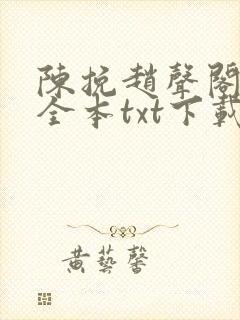 陳挽趙聲閣
全本txt下載
黃藝馨